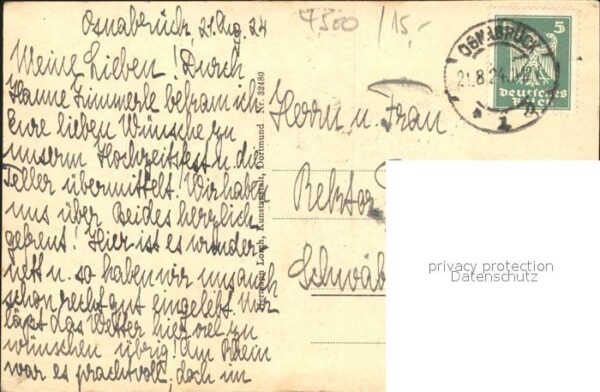 Osnabrück, 21. Aug. 24
7500 / 15,-
Meine Lieben! Durch
Hanne Zimmerle bekam ich
Eure lieben Wünsche zu
unserm Hochzeitsfest u. die
Teller übermittelt! Wir haben
uns über Beides herzlich
gefreut! Hier ist es wunder-
nett u. so haben wir uns auch
schon recht gut eingelebt. Nur
läßt das Wetter hier viel zu
wünschen übrig! Am Rhein
war es prachtvoll, doch im
Hermann Lorch, Kunstanstalt, Dortmund. Nr. 32480
OSNABRÜCK
21.8.24
* 1
5
Deutsches
Reich
Herrn u. Frau
Rektor
Schwäb
privacy protection
Datenschutz